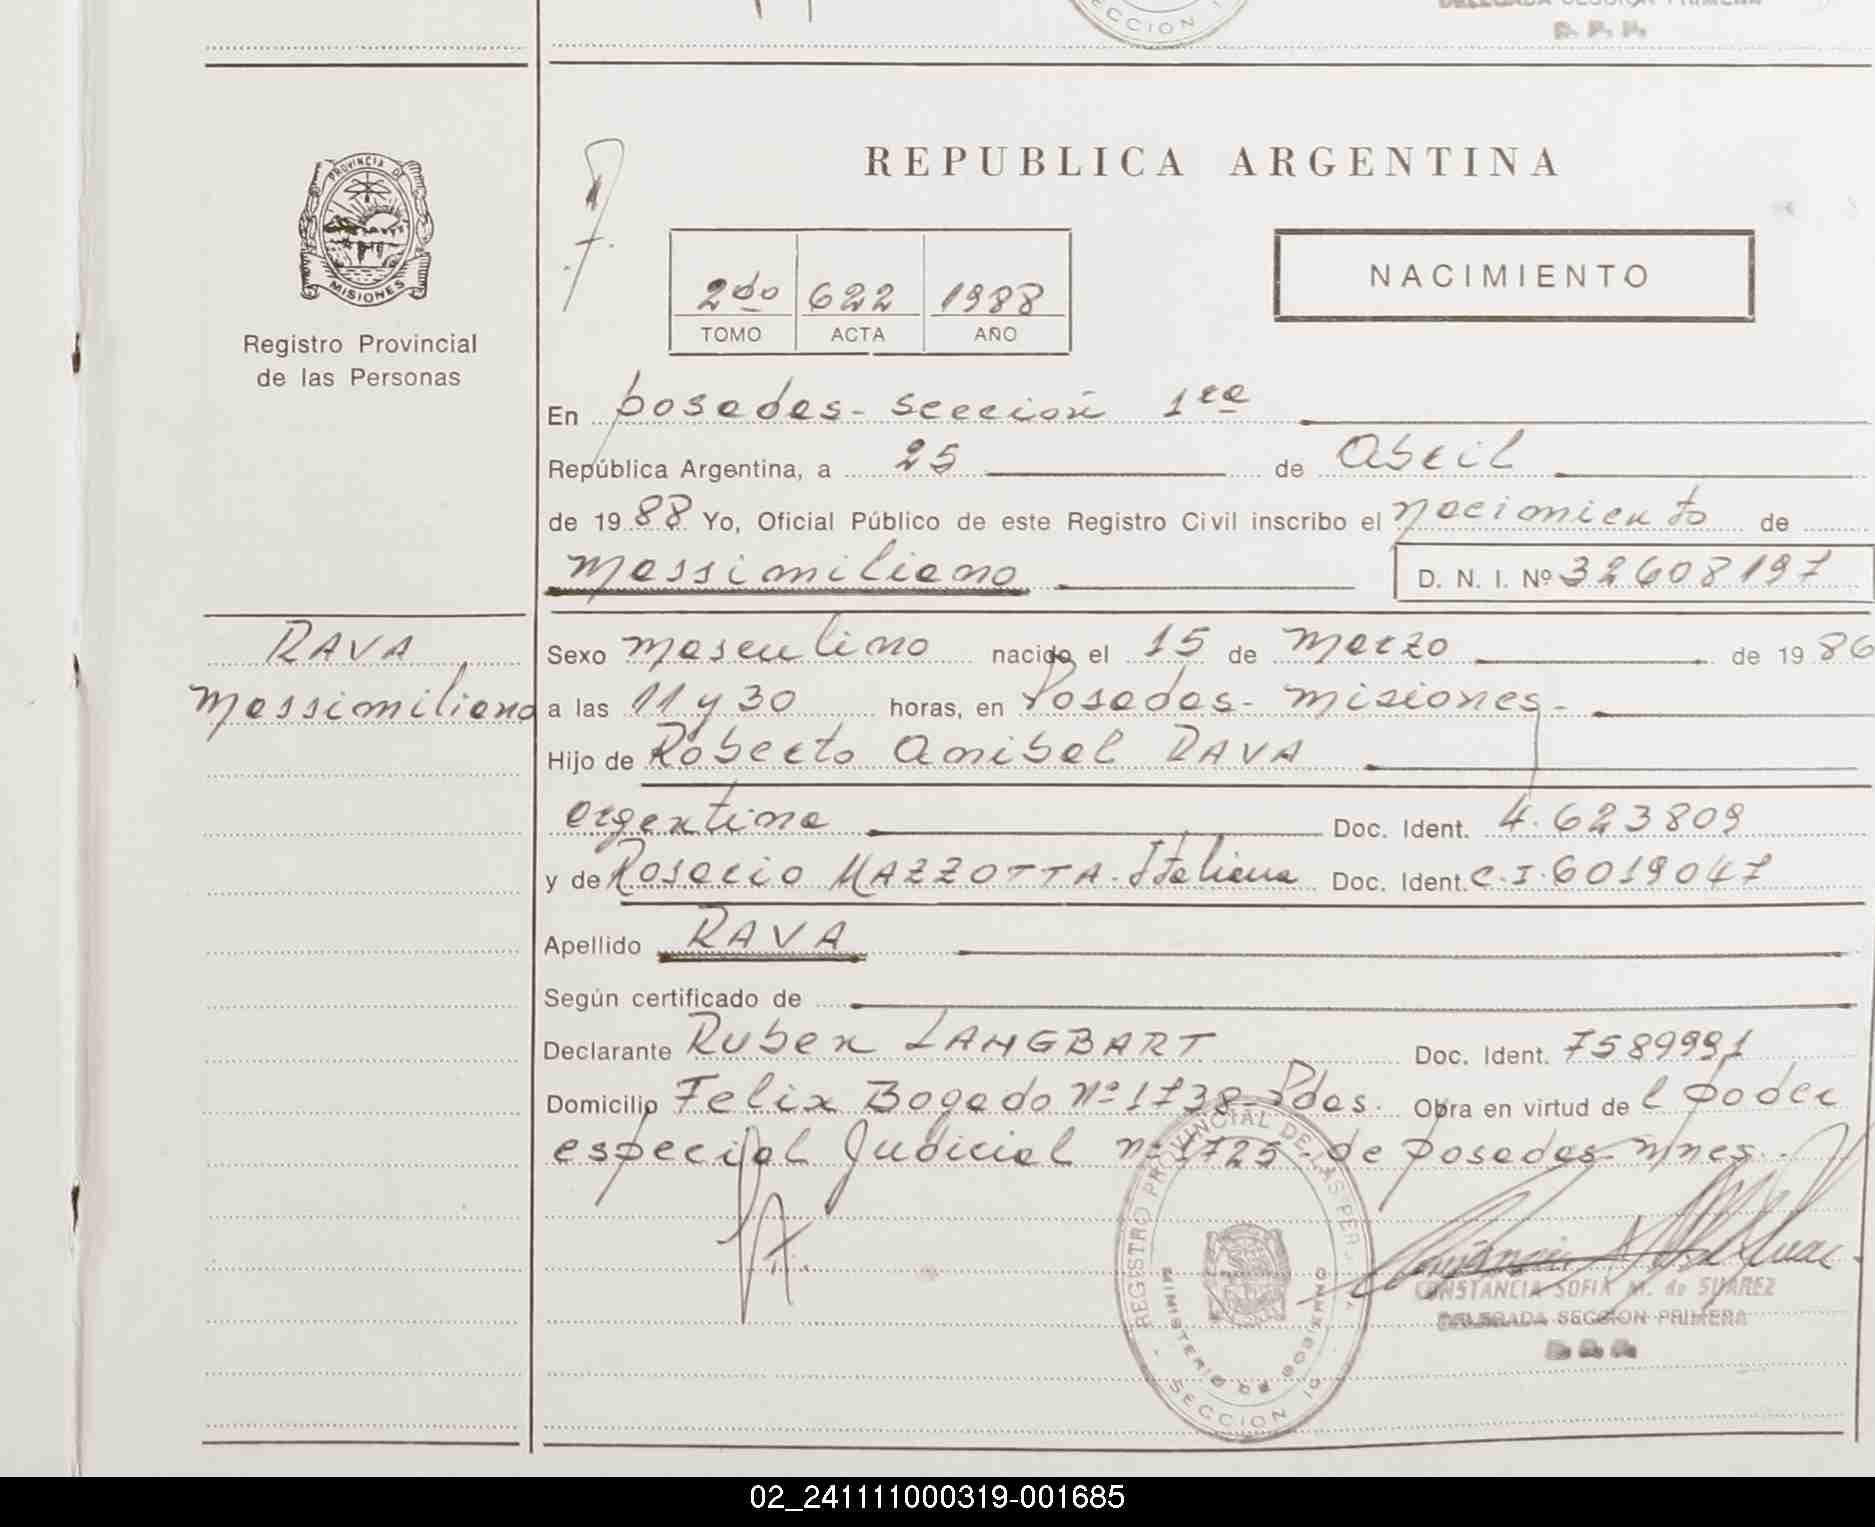 DELEGADA SECCION PRIMERA
SECCION 1
D. P. P.
PROVINCIA DE
MISIONES
Registro Provincial
de las Personas
REPUBLICA ARGENTINA
NACIMIENTO
2do 622 1988
TOMO ACTA AÑO
En posadas - sección 1ra
República Argentina, a 25 de Abril
de 1988 Yo, Oficial Público de este Registro Civil inscribo el nacimiento de
Massimiliano D. N. I. Nº 32608197
RAVA
Massimiliano
Sexo masculino nacido el 15 de Marzo de 1986
a las 11 y 30 horas, en Posadas - misiones -
Hijo de Roberto Anibal RAVA
argentino Doc. Ident. 4.623809
y de Rosario MAZZOTTA - Italiana Doc. Ident. C.I. 6019047
Apellido RAVA
Según certificado de
Declarante Ruben LANGBART Doc. Ident. 7589991
Domicilio Felix Bogado Nº 1738 - Pdas. Obra en virtud de l poder
especial Judicial nº 1725 - de posadas - mnes. -
REGISTRO PROVINCIAL DE LAS PER
MINISTERIO DE GOBIERNO
SECCION 1a
CONSTANCIA SOFIA M. de SUAREZ
DELEGADA SECCION PRIMERA
02_241111000319-001685